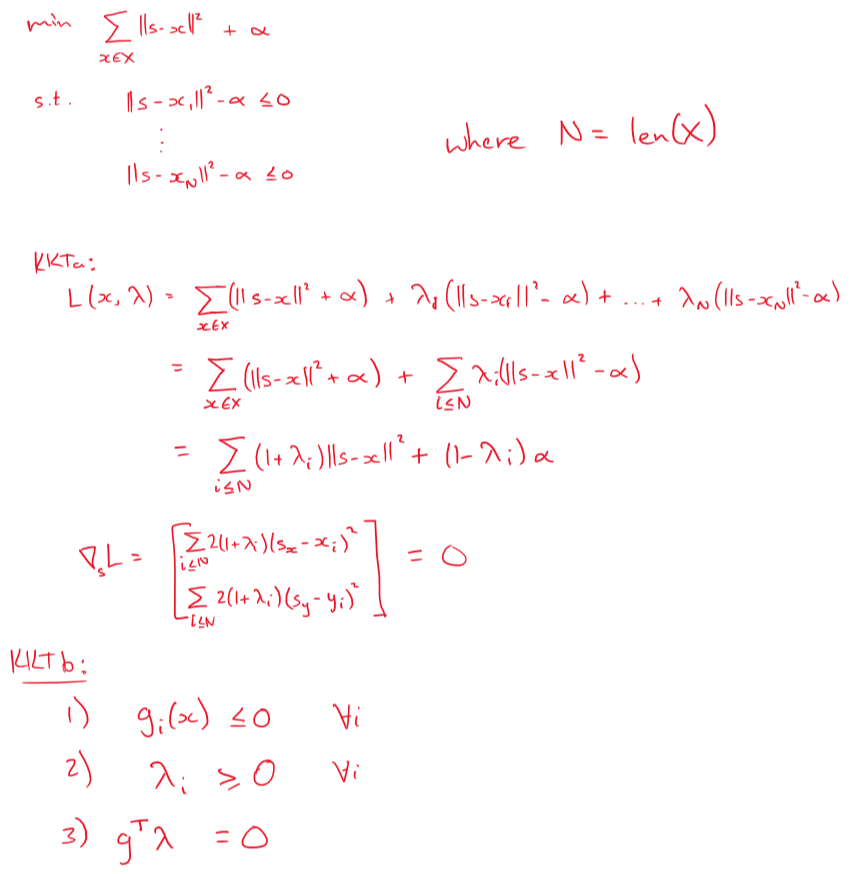 min ∑_{x∈X} ||s-x||² + α
s.t. ||s-x₁||² - α ≤ 0
⋮
where N = len(X)
||s-x_N||² - α ≤ 0
KKTa:
L(x, λ) = ∑_{x∈X} (||s-x||² + α) + λ₁(||s-x₁||² - α) + ... + λ_N(||s-x_N||² - α)
= ∑_{x∈X} (||s-x||² + α) + ∑_{i≤N} λᵢ(||s-x||² - α)
= ∑_{i≤N} (1+λᵢ)||s-x||² + (1-λᵢ)α
∇_s L = [ ∑_{i≤N} 2(1+λᵢ)(s_x - xᵢ)²
∑_{i≤N} 2(1+λᵢ)(s_y - yᵢ)² ] = 0
KKTb:
1) gᵢ(x) ≤ 0 ∀i
2) λᵢ ≥ 0 ∀i
3) gᵀλ = 0